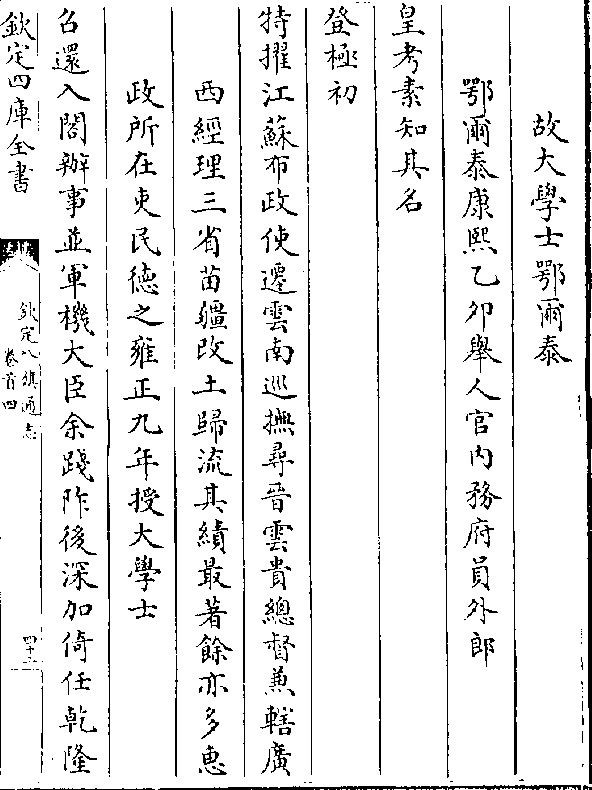 故大學士鄂爾泰
鄂爾泰康熙乙卯舉人官内務府員外郎
皇考素知其名
登極初
特擢江蘇布政使遷雲南巡撫尋晉雲貴總督兼轄廣
西經理三省苗疆改土歸流其績最著餘亦多惠
政所在吏民德之雍正九年授大學士
召還入閣辦事並軍機大臣余踐阼後深加倚任乾隆
欽定四庫全書
欽定八旗通志
卷首四
四十三